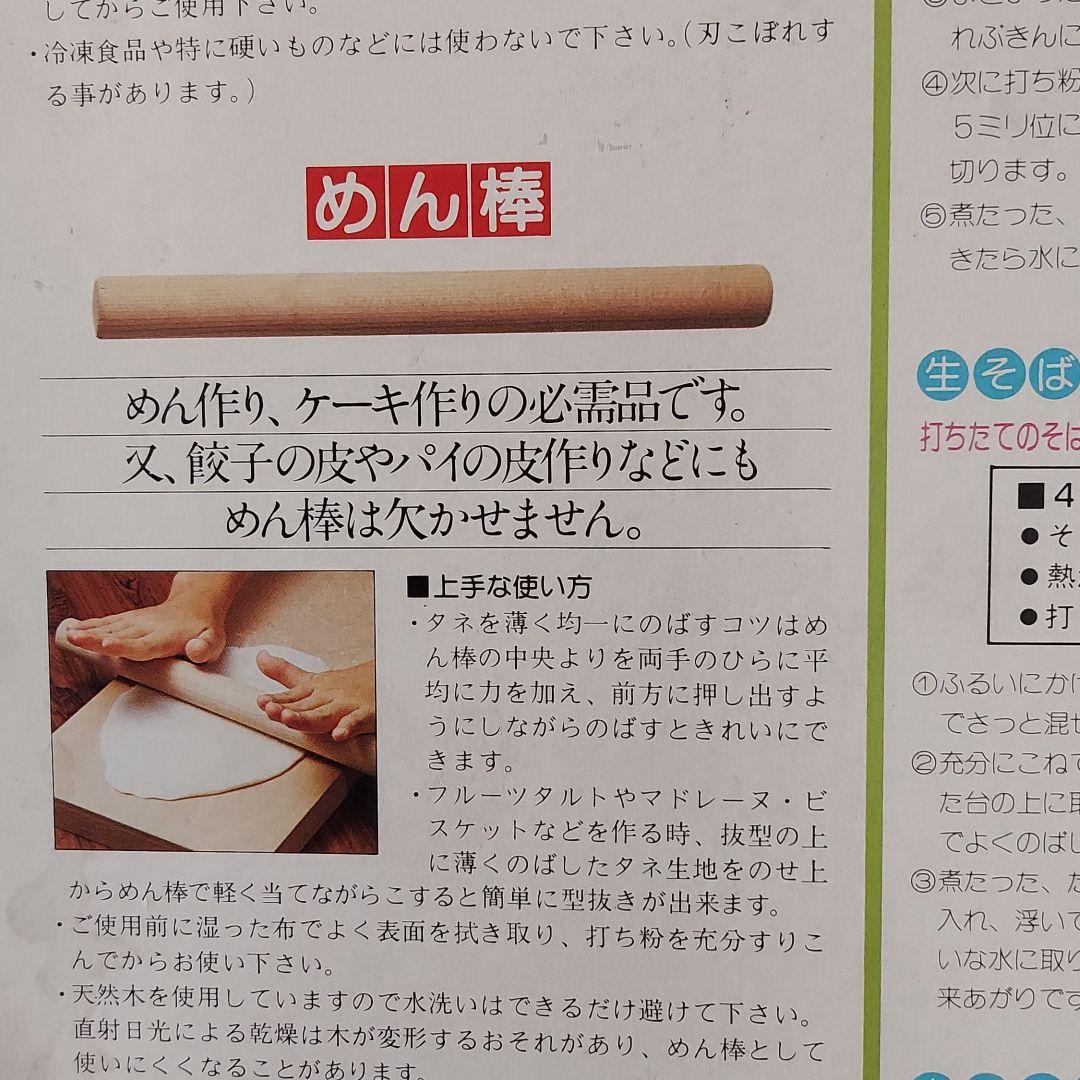 してからご使用下さい。
・冷凍食品や特に硬いものなどには使わないで下さい。(刃こぼれす
る事があります。)
めん棒
めん作り、ケーキ作りの必需品です。
又、餃子の皮やパイの皮作りなどにも
めん棒は欠かせません。
■上手な使い方
・タネを薄く均一にのばすコツはめ
ん棒の中央よりを両手のひらに平
均に力を加え、前方に押し出すよ
うにしながらのばすときれいにで
きます。
・フルーツタルトやマドレーヌ・ビ
スケットなどを作る時、抜型の上
に薄くのばしたタネ生地をのせ上
からめん棒で軽く当てながらこすると簡単に型抜きが出来ます。
・ご使用前に湿った布でよく表面を拭き取り、打ち粉を充分すりこ
んでからお使い下さい。
・天然木を使用していますので水洗いはできるだけ避けて下さい。
直射日光による乾燥は木が変形するおそれがあり、めん棒として
使いにくくなることがあります。
れぶきんに
④次に打ち粉
5ミリ位に
切ります。
⑤煮たった、
きたら水に
生そば
打ちたてのそば
■4
●そ
●熱
●打
①ふるいにかけ
でさっと混ぜ
②充分にこねて
た台の上に取
でよくのばし
③煮たった、た
入れ、浮いて
いな水に取り
来あがりです